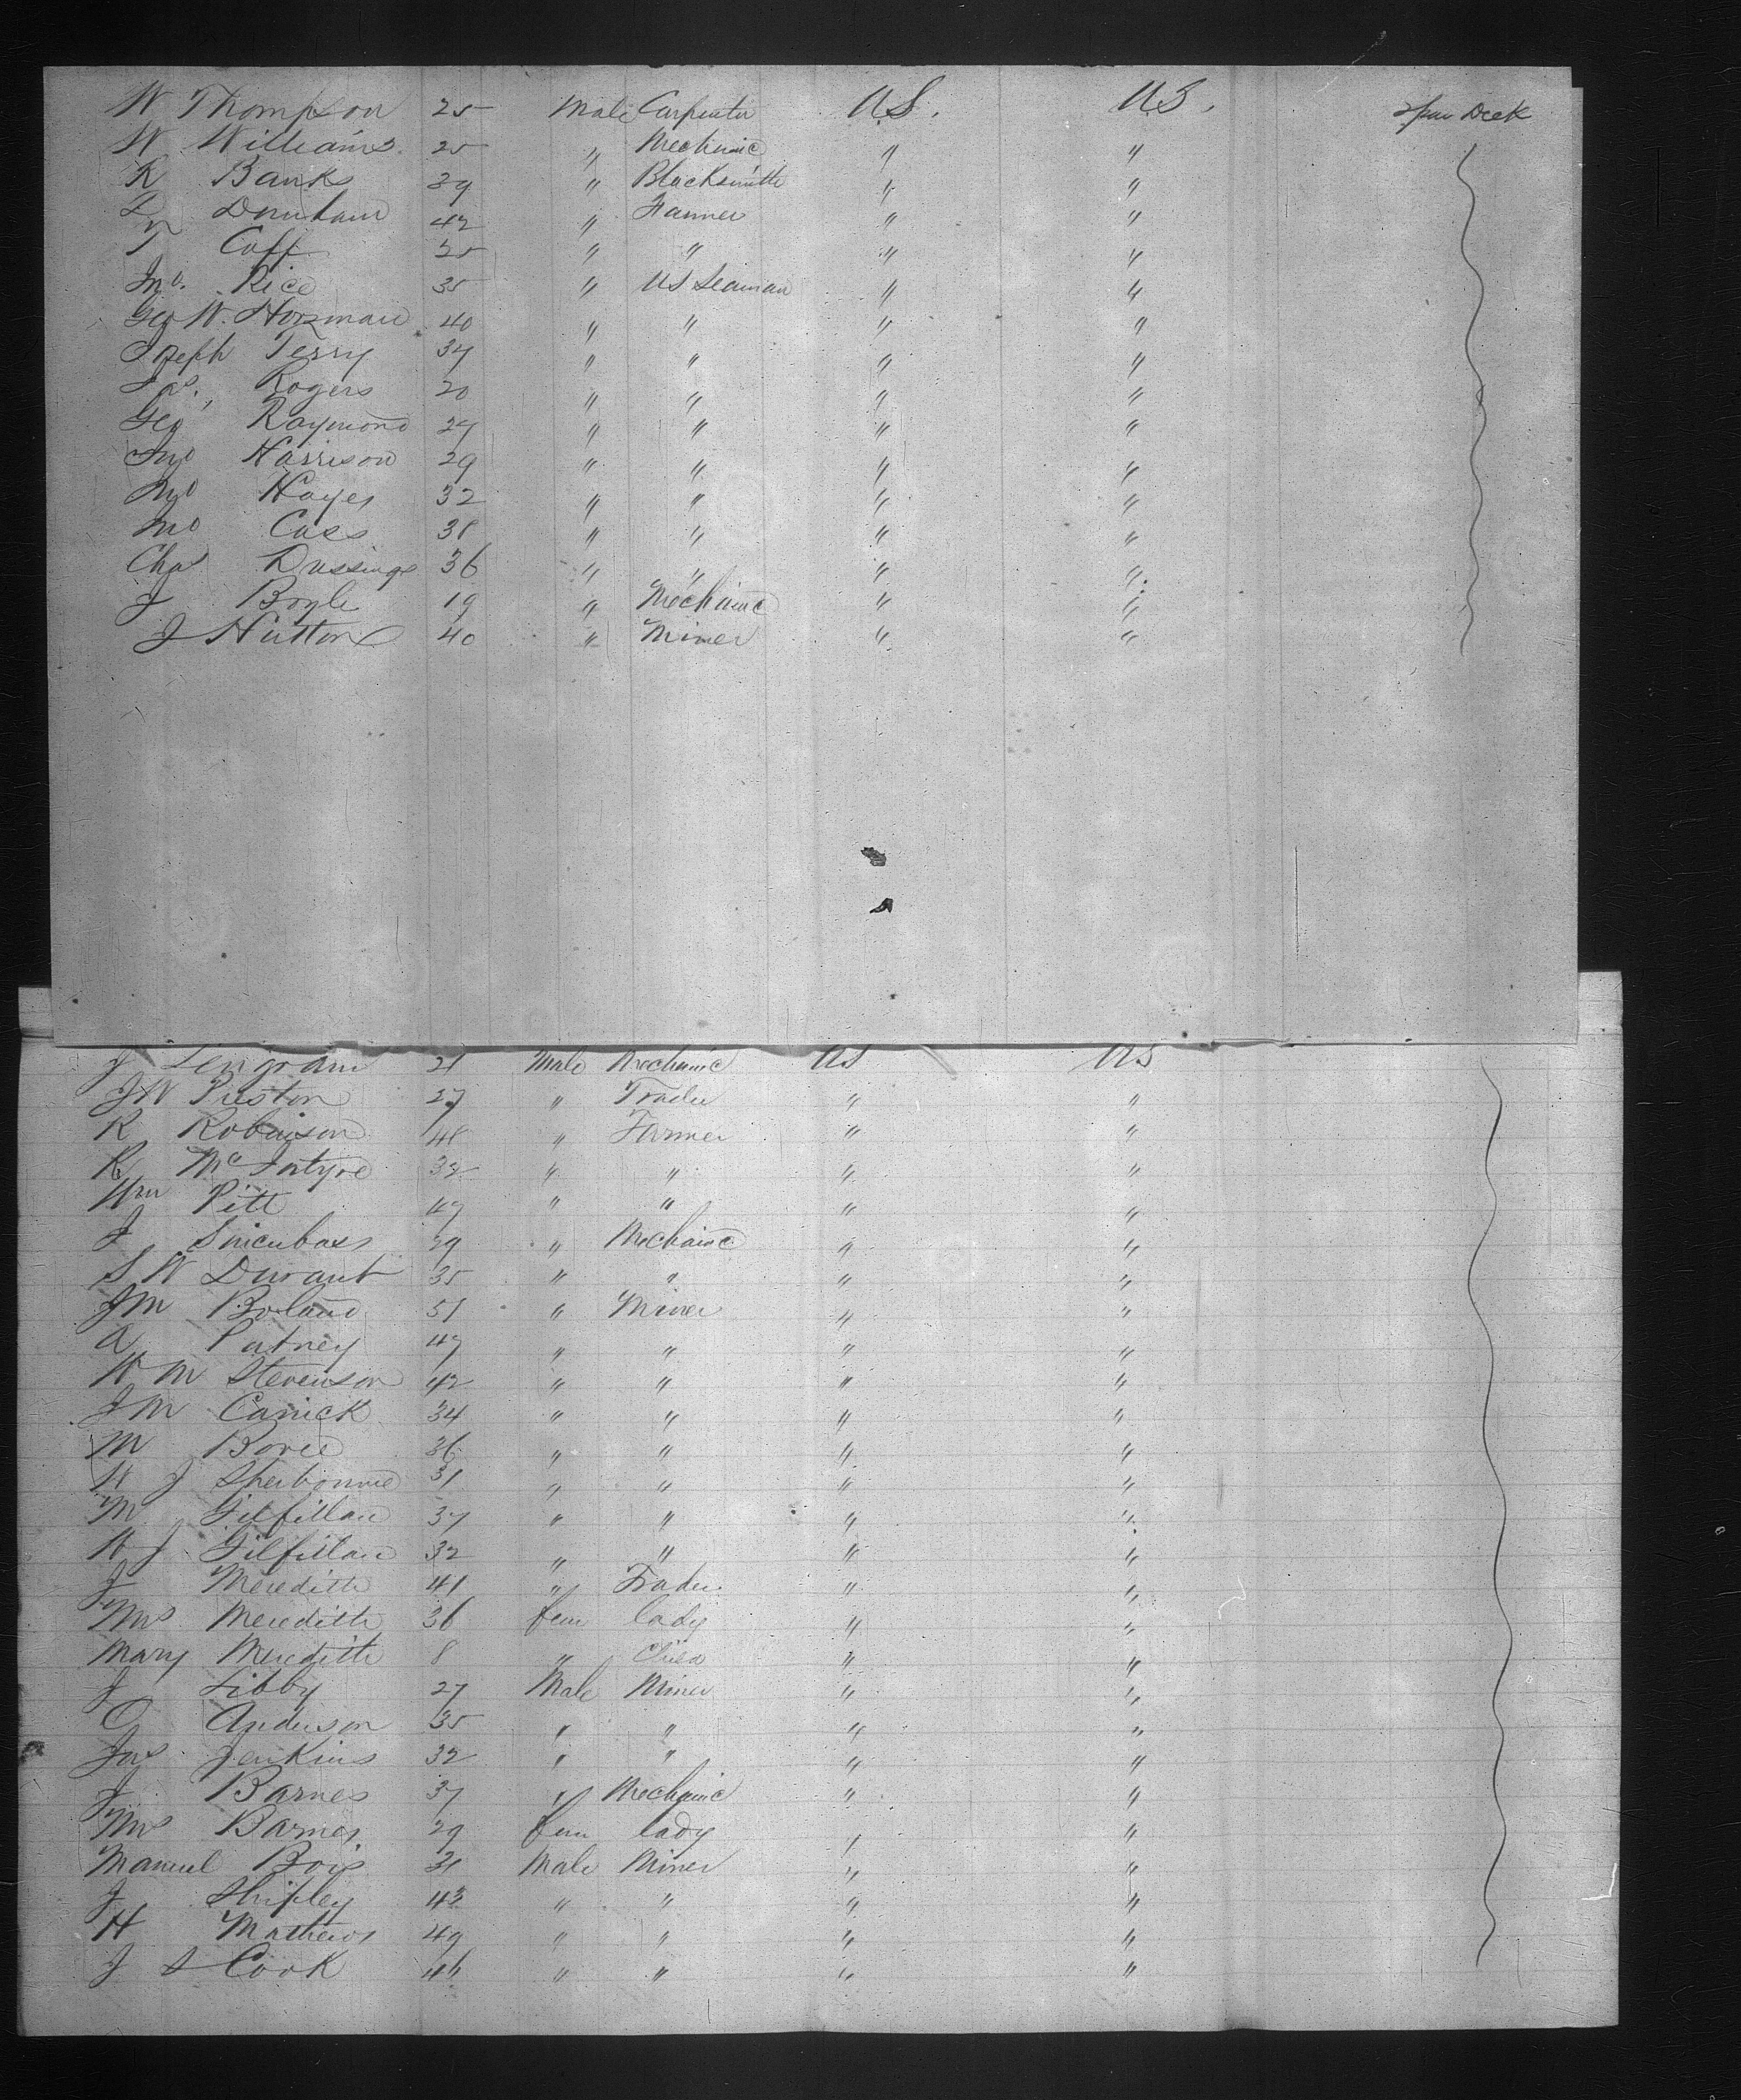 W Thompson 25 Male Carpenter U.S. U.S. Spar Deck
W Williams 25 " Mechanic " "
R Banks 39 " Blacksmith " "
Dounham 42 " Farmer " "
T Coff 25 " " " "
Jno. Rice 35 " US Seaman " "
Geo W. Horsman 40 " " " "
Joseph Terry 34 " " " "
Jas. Rogers 20 " " " "
Geo Raymond 27 " " " "
Jno Harrison 29 " " " "
Jno Hayes 32 " " " "
Jno Cass 38 " " " "
Chas Dussings 36 " " " "
J Boyle 19 " Mechanic " "
J Hutton 40 " Miner " "
J Lengram 21 Male Mechanic US US
JW Piston 27 " Trader " "
R Robinson 48 " Farmer " "
R McIntyre 32 " " " "
Wm Pitt 47 " " " "
J 29 " Mechanic " "
S W Durant 35 " " " "
JM Boland 51 " Miner " "
A Putney 47 " " " "
W M Stevenson 42 " " " "
JM Carrick 34 " " " "
M Boree 36 " " " "
W J Sherbonne 31 " " " "
M Gilfillan 37 " " " "
W J Gilfillan 32 " " " "
J Meredith 41 " Trader " "
Mrs Meredith 36 fem lady " "
Mary Meredith 8 " Child " "
J Libby 27 Male Miner " "
O Anderson 35 " " " "
Jas Jenkins 32 " " " "
J Barnes 37 " Mechanic " "
Mrs Barnes 29 fem lady " "
Manuel Bois 31 Male Miner " "
J Shipley 43 " " " "
H Mathews 49 " " " "
J S Cook 46 " " " "